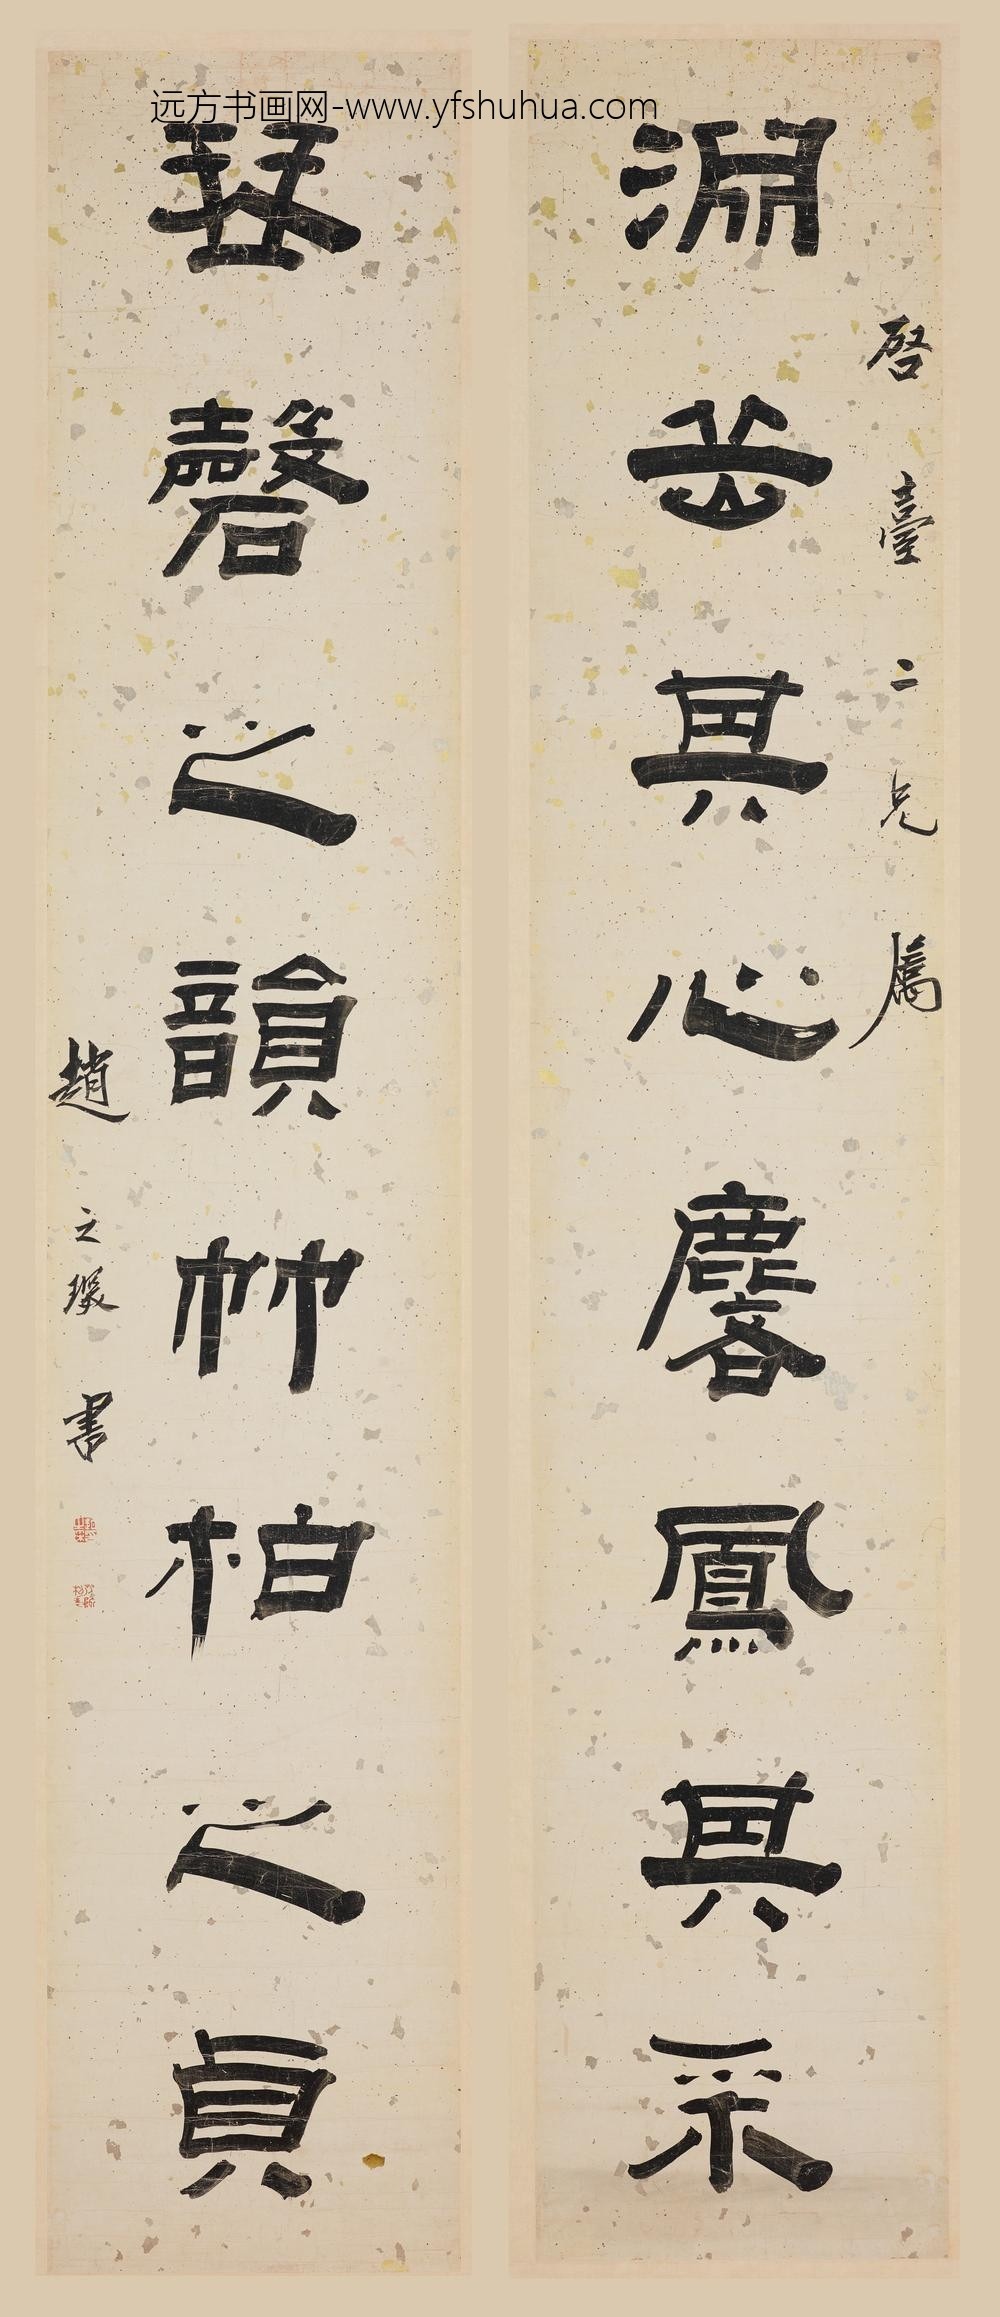 远方书画网-www.yfshuhua.com
啓臺二兄屬
淵岳其心麐鳳其采
琴磬之韻竹柏之貞
趙之琛書